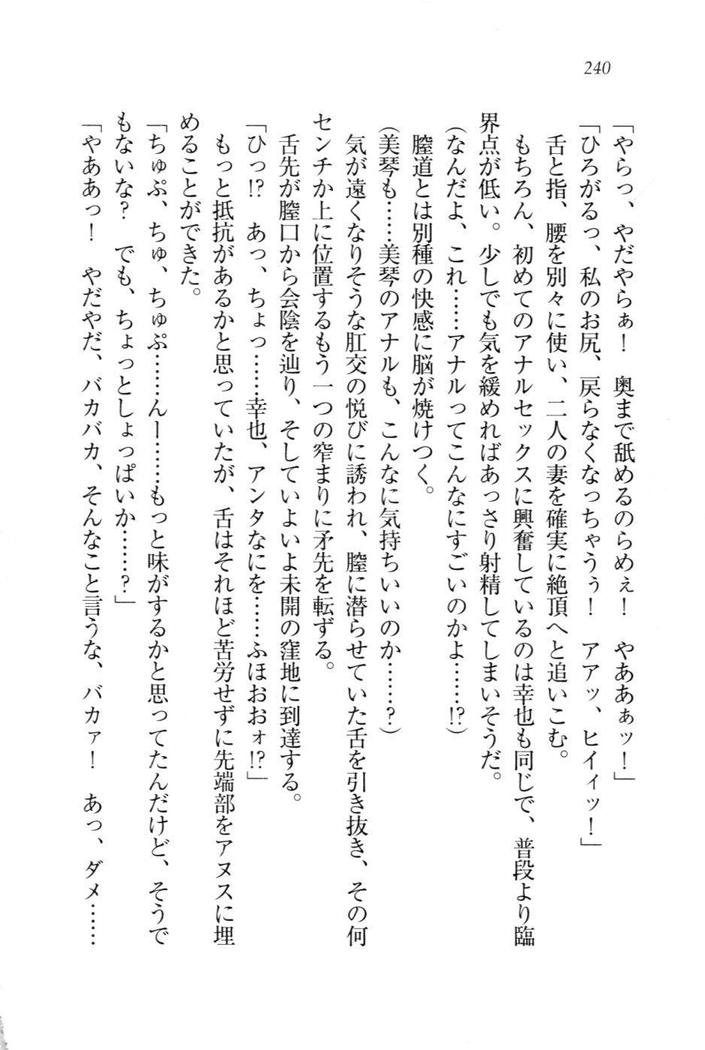 240
「やらっ、やだやらぁ！　奥まで舐めるのらめぇ！　やああぁッ！」
「ひろがるっ、私のお尻、戻らなくなっちゃうぅ！　アアッ、ヒイィッ！」
舌と指、腰を別々に使い、二人の妻を確実に絶頂へと追いこむ。
もちろん、初めてのアナルセックスに興奮しているのは幸也も同じで、普段より臨
界点が低い。少しでも気を緩めればあっさり射精してしまいそうだ。
（なんだよ、これ……アナルってこんなにすごいのかよ……!?）
膣道とは別種の快感に脳が焼けつく。
（美琴も……美琴のアナルも、こんなに気持ちいいのか……？）
気が遠くなりそうな肛交の悦びに誘われ、膣に潜らせていた舌を引き抜き、その何
センチか上に位置するもう一つの窄まりに矛先を転ずる。
舌先が膣口から会陰を辿り、そしていよいよ未開の窪地に到達する。
「ひっ!?　あっ、ちょっ……幸也、アンタなにを……ふほおおォ!?」
もっと抵抗があるかと思っていたが、舌はそれほど苦労せずに先端部をアヌスに埋
めることができた。
「ちゅぷ、ちゅ、ちゅぷ……んー……もっと味がするかと思ってたんだけど、そうで
もないな？　でも、ちょっとしょっぱいか……？」
「やああっ！　やだやだ、バカバカ、そんなこと言うな、バカァ！　あっ、ダメ……